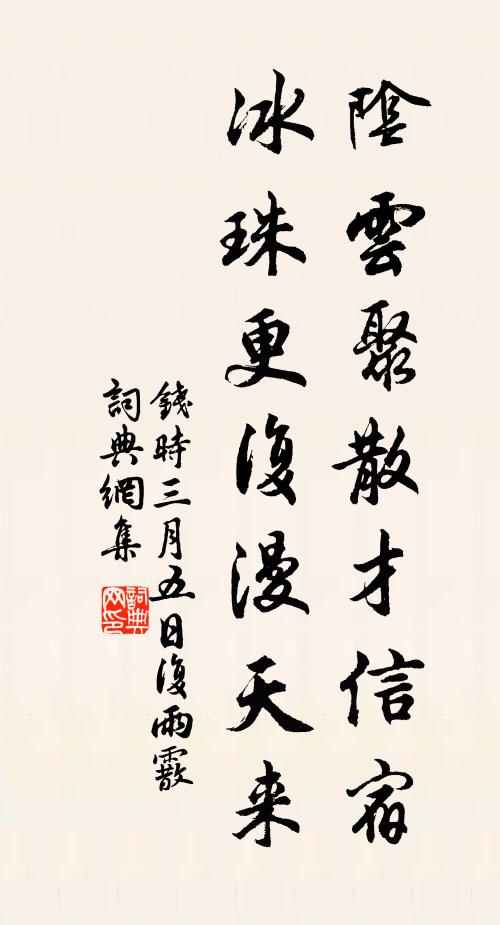 陰雲聚散才信宿
冰珠更復漫天来
錢時三月五日復雨霰
詞典網集
詞典网印